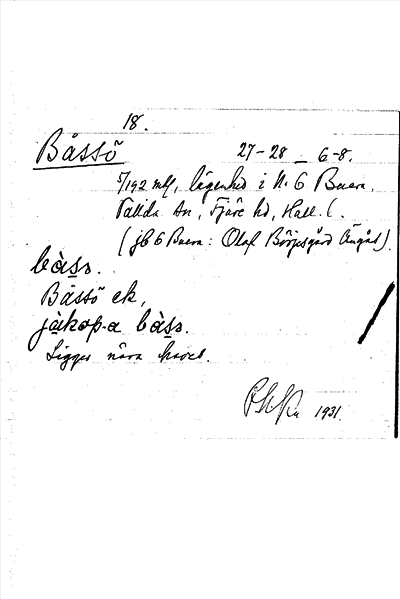 18.
Båssö 27-28 — 6-8.
5/192 mtl, lägenhed i N. 6 Buera,
Vallda sn, Fjäre hd, Hall. l.
(jb 6 Buera: Olof Börjesgård Ängås).
bàso.
Båssö ek,
jàkop-a bàso.
Ligger nära havet.
1931.